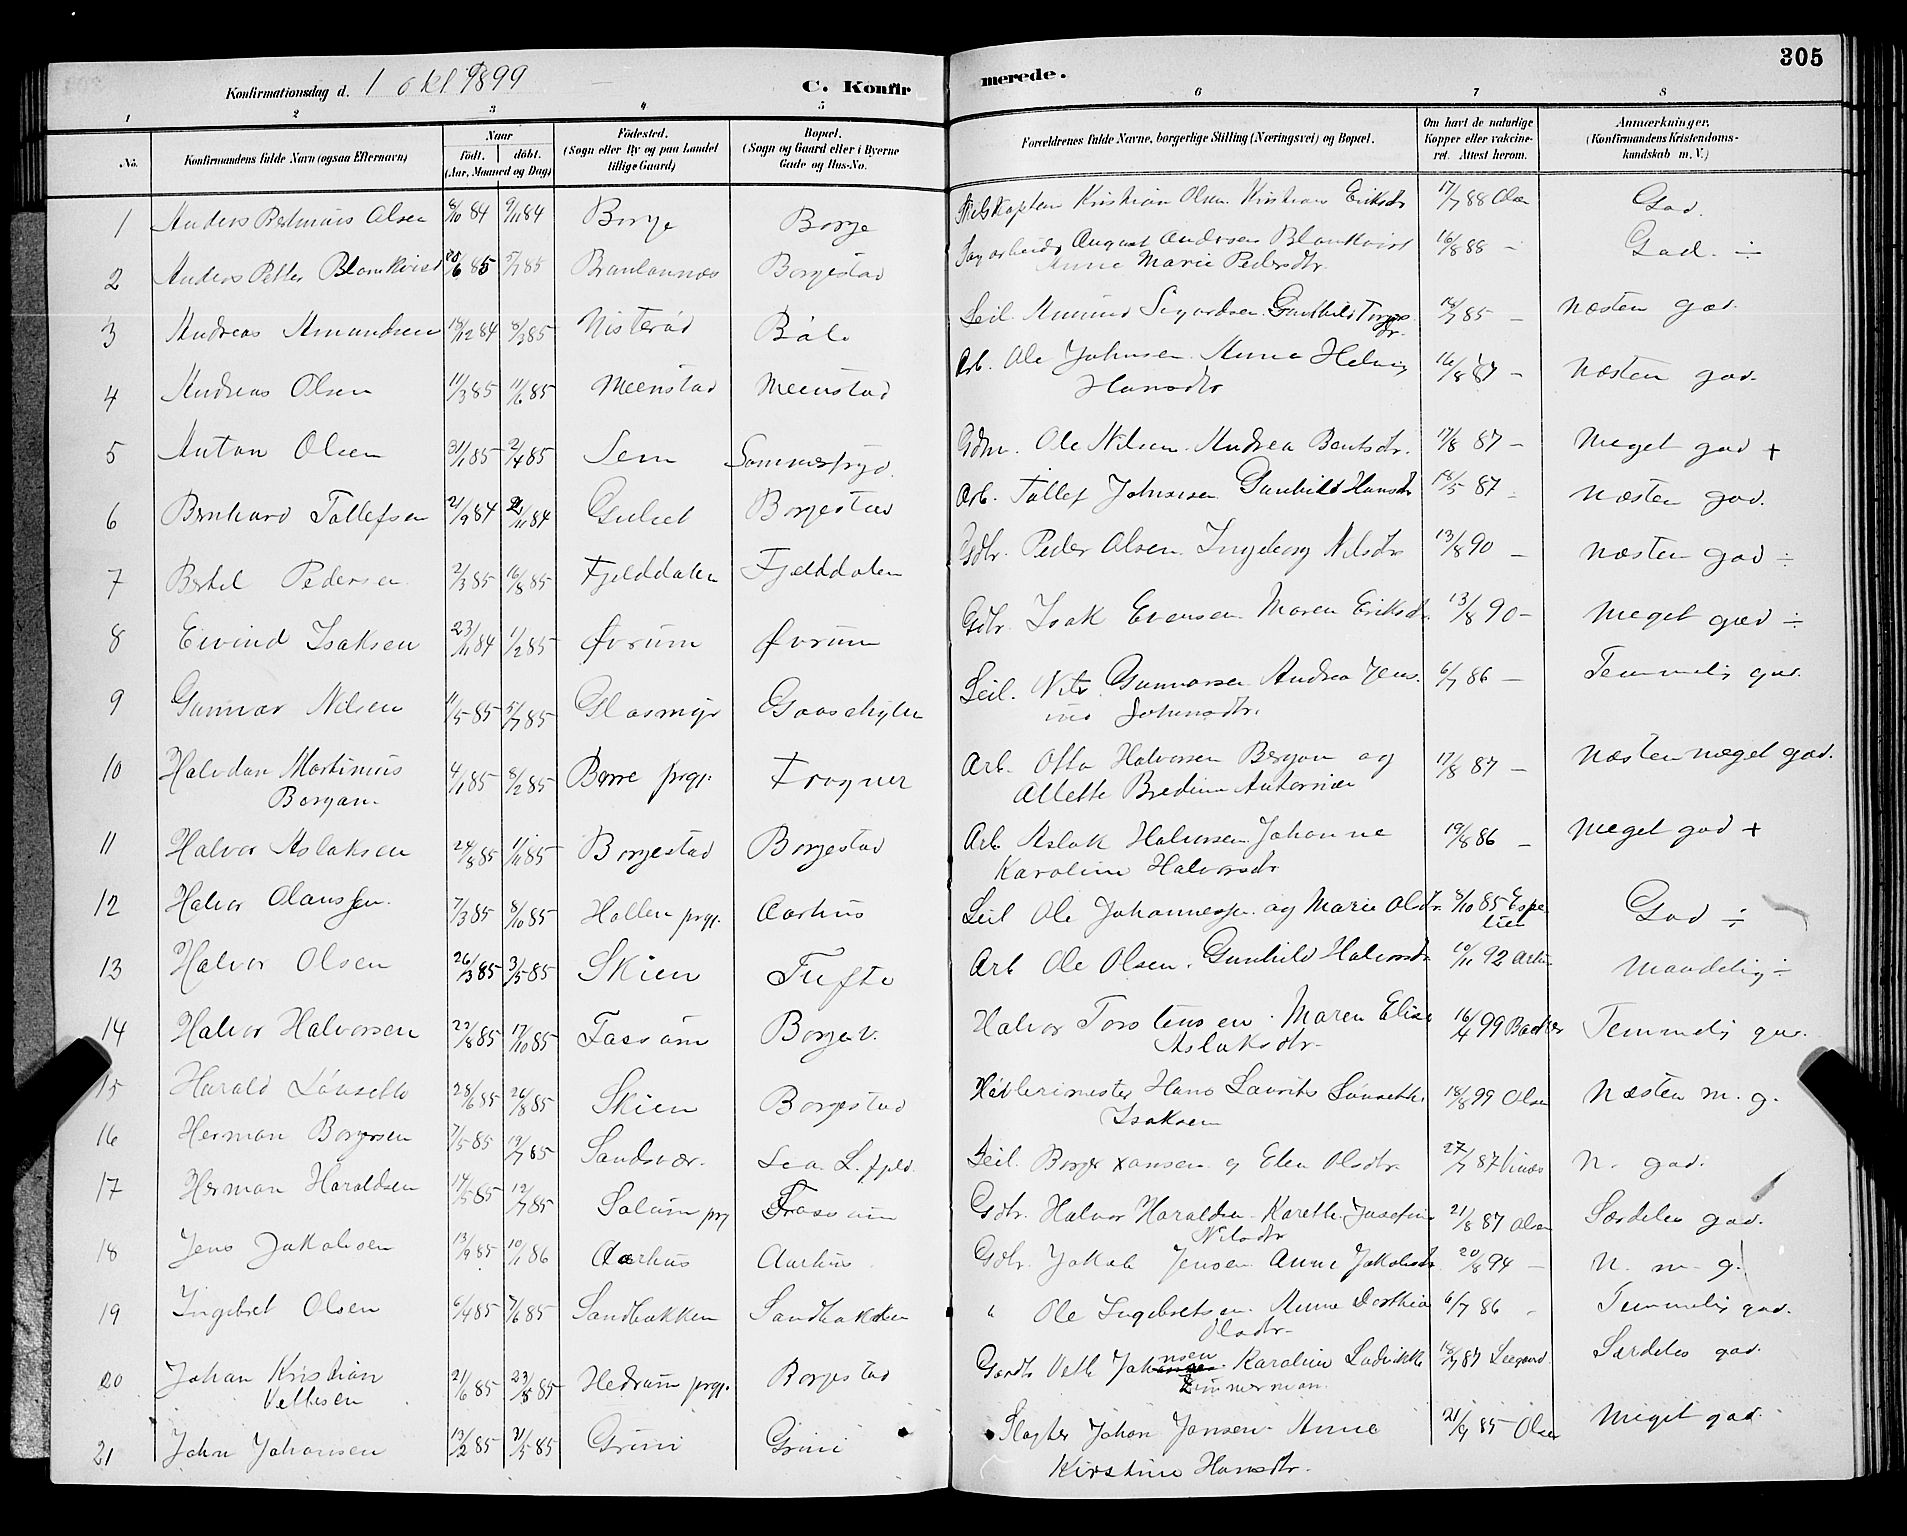 305
Konfirmationsdag d. 1 okt 1899
C. Konfirmerede.
1 2 3 4 5 6 7 8
No.
Konfirmandens fulde Navn (ogsaa Efternavn)
Naar
födt. döbt.
(Aar, Maaned og Dag)
Födested.
(Sogn eller By og paa Landet
tillige Gaard)
Bopæl.
(Sogn og Gaard eller i Byerne
Gade og Hus-No.
Forældrenes fulde Navne, borgerlige Stilling (Næringsvei) og Bopæl.
Om havt de naturlige
Kopper eller vakcine-
ret. Attest herom.
Anmærkninger.
(Konfirmandens Kristendoms-
kundskab m. V.)
1 Anders Olsen 8/10 84 9/11 84 Borge Borge Kristian Olsen Kristiane Eriksdtr 17/7 88 Olsen God.
2 Anders Petter Blomkvist 6 85 5/7 85 Borgestad August Andersen Blomkvist 16/8 88 - God. ÷
Anne Marie Pedersdtr.
3 Andreas Amundsen 18/12 84 8/3 85 Nisterød Böle Seil. Amund Sigurdsen Gunhild 18/7 85 - Næsten god.
4 Andreas Olsen 11/3 85 11/6 85 Meenstad Meenstad Arb. Ole Johnsen. Anna Helvig 16/8 87 - Næsten god.
Hansdtr
5 Anton Olsen 31/1 85 2/4 85 Sem Sommerfryd. Gdm. Ole Nilsen. Andrea Bentsdtr. 17/8 87 - Meget god +
6 Bernhard Tollefsen 21/9 84 11 84 Gulset Borgestad Arb. Tollef Johnsen Gunhild Hansdtr 18/5 87 - Næsten god.
7 Bertel Pedersen 2/3 85 16/8 85 Fjelddalen Fjelddalen Gdbr. Peder Olsen. Ingeborg Nilsdtr 13/8 90 - Næsten god ÷
8 Eivind Isaksen 23/11 84 1/2 85 Øvrum Øvrum Gdbr. Isak Evensen. Maren Eriksdtr. 13/8 90 - Meget god ÷
9 Gunnar Nilsen 11/5 85 5/7 85 Glasmyr Gaasehylen Seil. Nils Gunnarsen Andrea Jen- 6/7 86 - Temmelig god.
ine Johnsdtr.
10 Halvdan Martinius 4/1 85 8/2 85 Borre prgj. Frogner Arb. Otto Halvorsen Borgan og 17/8 87 - Næsten meget god.
Borgan. Allette Bredine Antonsen
11 Halvor Aslaksen 24/8 85 1/11 85 Borgestad Borgestad Arb Aslak Halvorsen Johanne 19/8 86 - Meget god +
Karoline Halvorsdtr
12 Halvor Olaussen. 7/3 85 8/10 85 Hollen prgj. Aarhus Seil Ole Johannessen og Marie Olsdtr. 8/10 85 Espe- God ÷
lien
13 Halvor Olsen 26/3 85 3/5 85 Skien Tufte Arb Ole Olsen. Gunhild Halvorsdtr 10/11 92 Maadelig ÷
14 Halvor Halvorsen 22/8 85 17/10 85 Fossum Borge v. Halvor Torstensen. Maren Elise 16/4 99 Temmelig god.
Aslaksdtr.
15 Harald Lönseth 28/6 85 26/8 85 Skien Borgestad Høvlerimester Hans Laurits Lönseth. 18/8 99 Olsen Næsten m. g.
Isaksen
16 Herman Borgersen 7/5 85 19/7 85 Sandsvær. Seil. Borger Hansen og Elen Olsdtr. 27/7 87 N. god.
17 Herman Haraldsen 14/5 85 12/7 85 Solum prgj Fossum Gdbr. Halvor Haraldsen. Karethe Josefine 21/8 87 Olsen Særdeles god.
Nilsdtr
18 Jens Jakobsen 13/9 85 10/1 86 Aarhus Aarhus Gdbr. Jakob Jensen Anne Jakobsdtr 20/8 94 - N. m. g.
19 Ingebret Olsen 6/4 85 7/6 85 Sandbakken Sandbakken " Ole Ingebretsen. Anne Dorthea 6/7 86 - Temmelig god.
Olsdtr.
20 Johan Kristian 21/6 85 23/8 85 Hedrum prgj. Borgestad Vetle Johnsen. Karoline Lodvikke 18/7 87 Leegaard Særdeles god.
Vetlesen Zimmerman.
21 John Johansen 13/2 85 21/5 85 Grini Grini Slagter Johan Jensen. Anne 21/9 85 Olsen Meget god.
Kirstine Hansdtr.